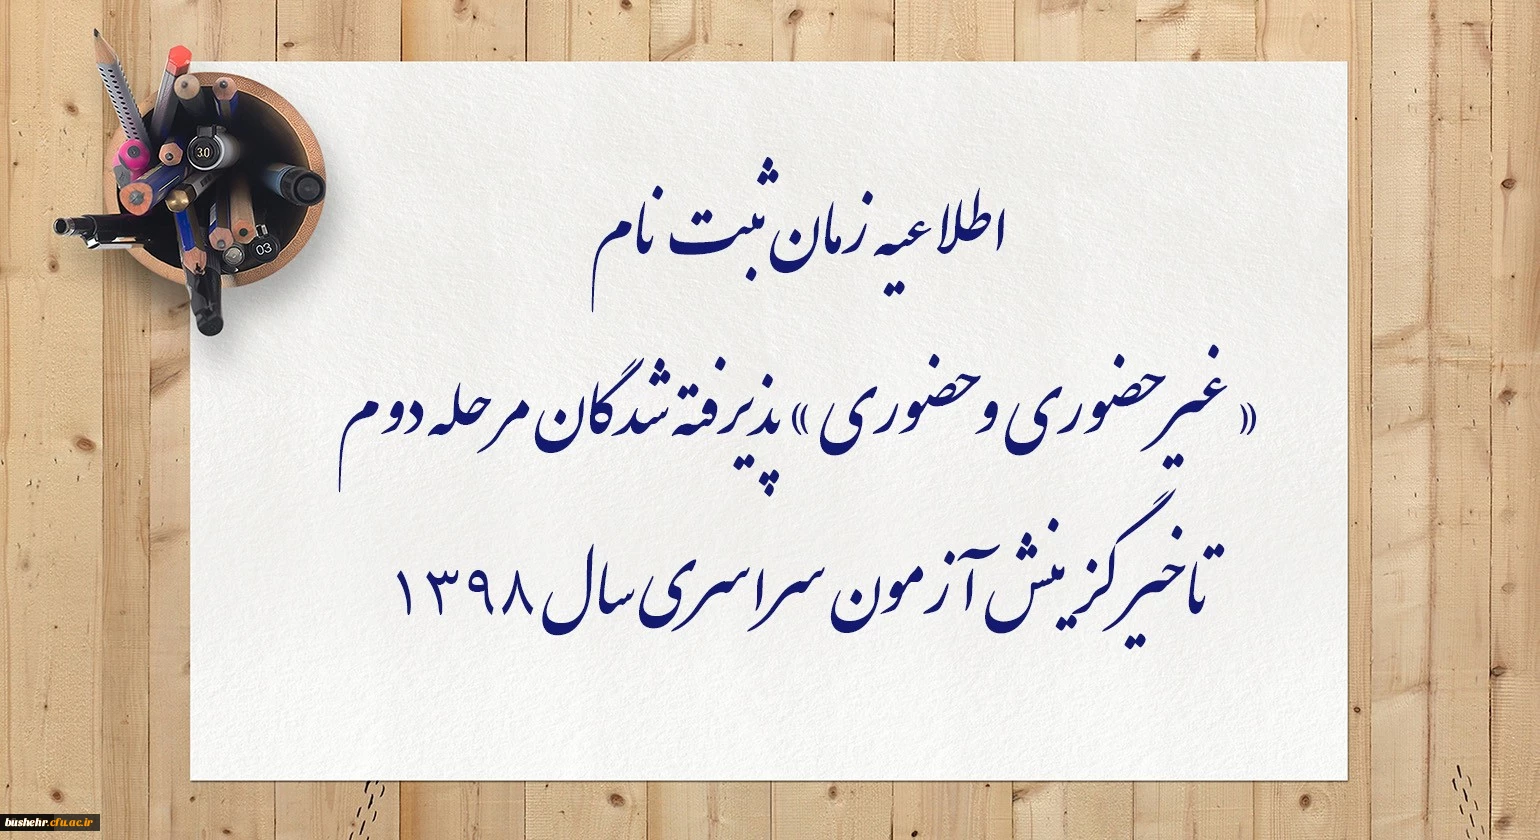 اطلاعیه زمان ثبت نام
« غیرحضوری و حضوری » پذیرفته شدگان مرحله دوم
تاخیر گزینش آزمون سراسری سال ۱۳۹۸
3.0
03
bushehr.cfu.ac.ir